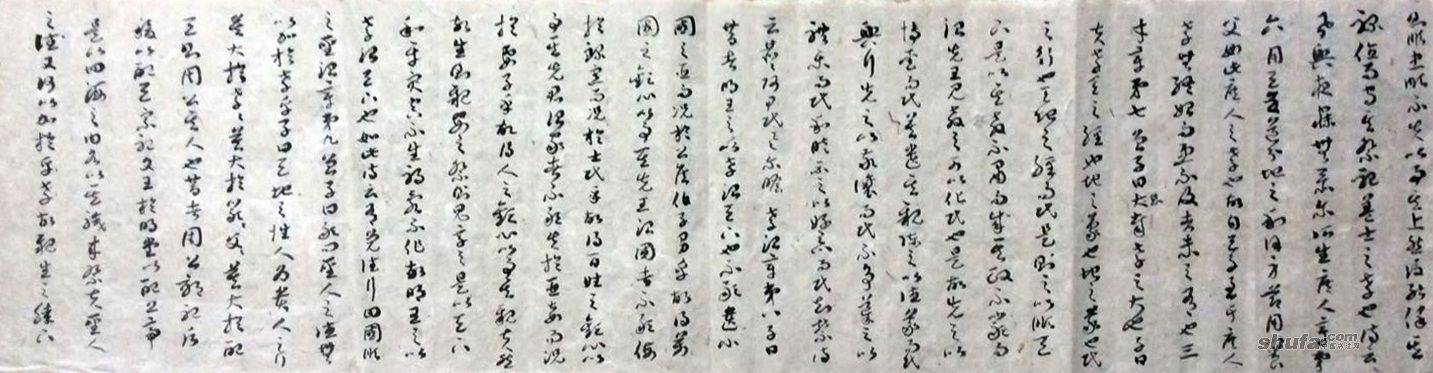 忠順忠順不失以事其上然後能保其
祿位而守其祭祀蓋士之孝也詩云
夙興夜寐無忝爾所生庶人章第
六用天之道分地之利謹身節用以養
父母此庶人之孝也故自天子至于庶人
孝無終始而患不及者未之有也三
才章第七曾子曰甚哉孝之大也子曰
夫孝天之經也地之義也地之義也民
之行也天地之經而民是則之以順天
下是以其教不肅而成其政不嚴而
治先王見教之可以化民也是故先之以
博愛而民莫遺其親陳之以德義而民
興行先之以敬讓而民不爭導之以
禮樂而民和睦示之以好惡而民知禁詩
云赫赫師尹民具爾瞻孝治章第八子曰
昔者明王之以孝治天下也不敢遺小
國之臣而況於公侯伯子男乎故得萬
國之歡心以事其先王治國者不敢侮
於鰥寡而況於士民乎故得百姓之歡心以
事其先君治家者不敢失於臣妾而況
於妻子乎故得人之歡心以事其親夫然
故生則親安之祭則鬼享之是以天下
和平災害不生禍亂不作故明王之以
孝治天下也如此詩云有覺德行四國順
之聖治章第九曾子曰敢問聖人之德無
以加於孝乎子曰天地之性人為貴人之行
莫大於孝孝莫大於嚴父父莫大於配
天則周公其人也昔者周公郊祀后
稷以配天宗祀文王於明堂以配上帝
是以四海之內各以其職來祭夫聖人
之德又何以加於孝乎故親生之膝下
shufa.com